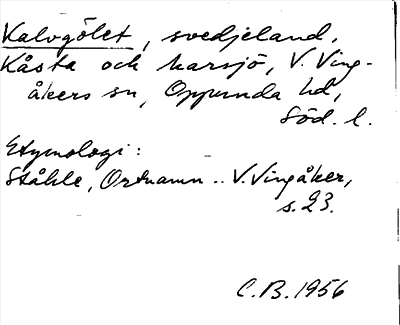 Kalvgölet, svedjeland,
Kåsta och Karsjö, V. Ving-
åkers sn, Oppunda hd,
Söd. l.
Etymologi:
Ståhle, Ortnamn .. V. Vingåker,
s. 23.
C. B. 1956